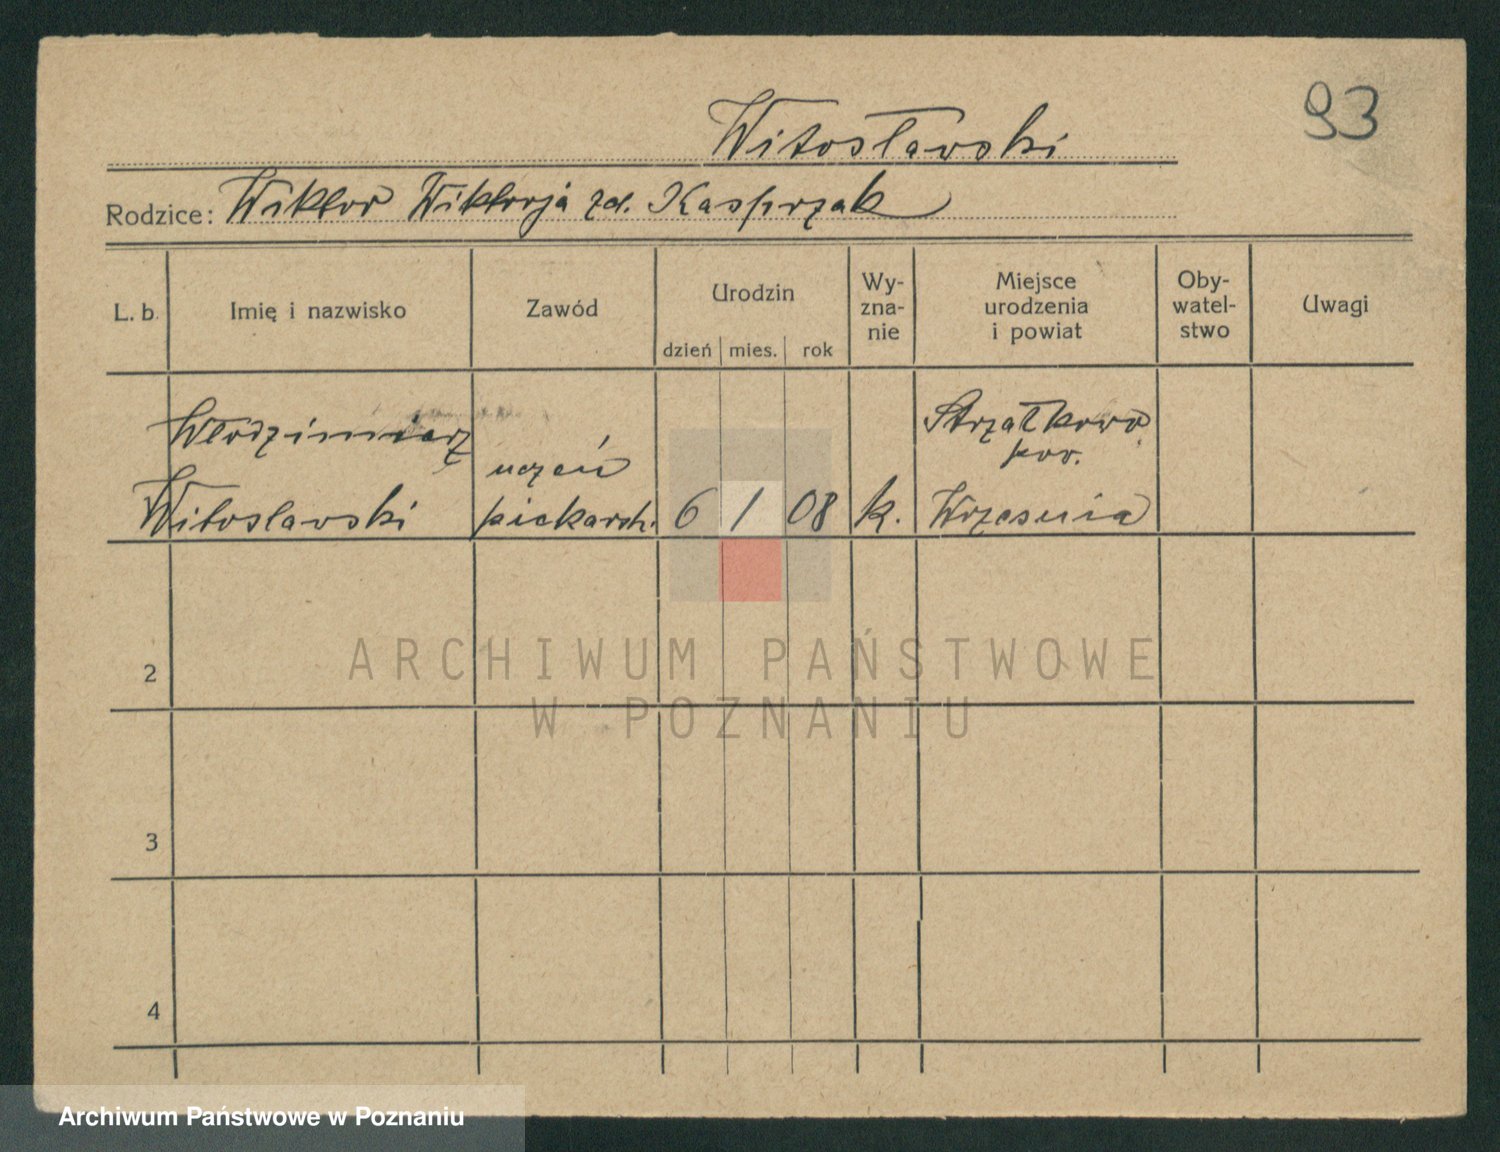 93
Witosławski
Rodzice: Wiktor Wiktorja zd. Kasprzak
L. b. Imię i nazwisko Zawód Urodzin Wy-
zna-
nie Miejsce
urodzenia
i powiat Oby-
watel-
stwo Uwagi
dzień mies. rok
Włodzimierz
Witosławski
uczeń
piekarsk.
6 1 08 k.
Strzałkowo
pow.
Września
2
3
4
ARCHIWUM PAŃSTWOWE
W POZNANIU
Archiwum Państwowe w Poznaniu